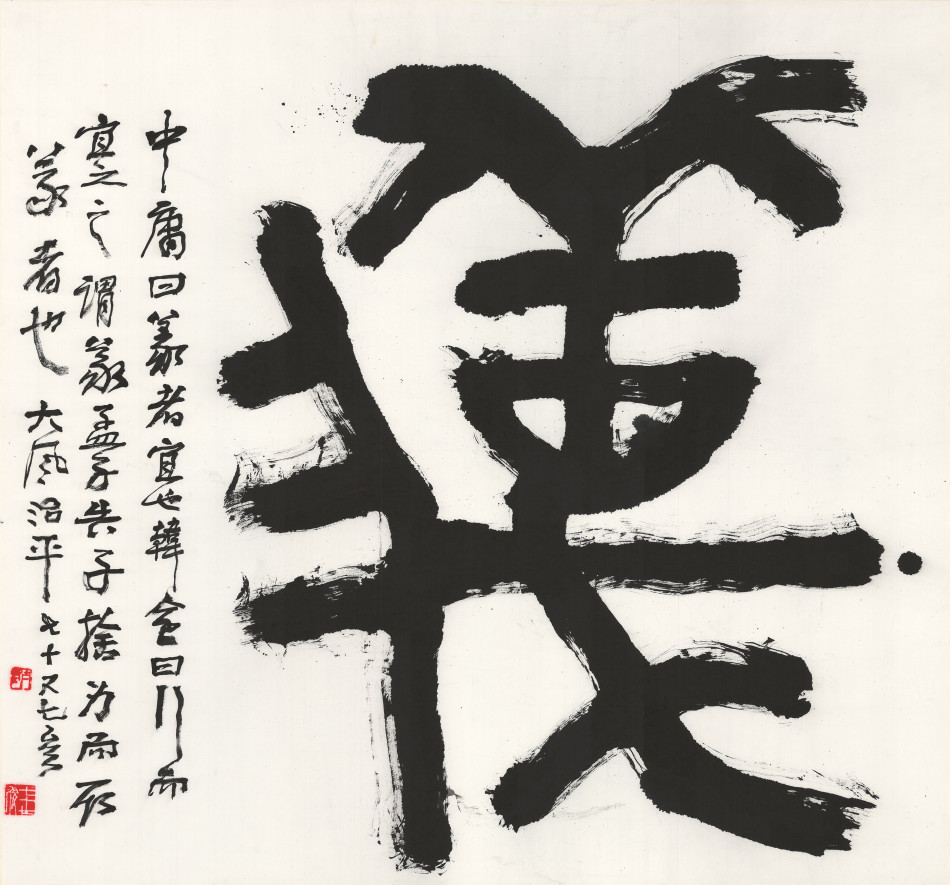 義
中庸曰義者宜也韓愈曰行而
宜之之謂義孟子告子捨而取
義者也 大風平七十又七